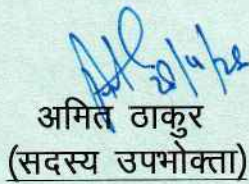 अमित ठाकुर
(सदस्य उपभोक्ता)